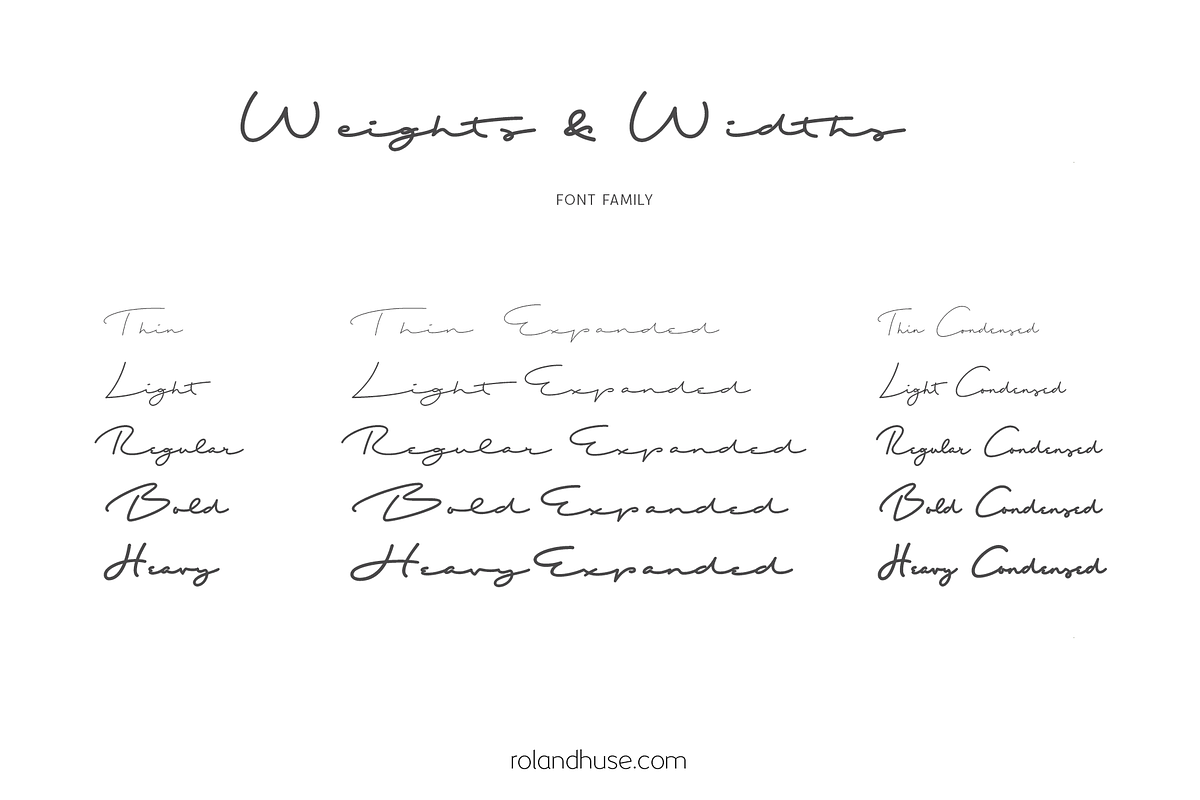 Weights & Widths
FONT FAMILY
Thin Thin Expanded Thin Condensed
Light Light Expanded Light Condensed
Regular Regular Expanded Regular Condensed
Bold Bold Expanded Bold Condensed
Heavy Heavy Expanded Heavy Condensed
rolandhuse.com